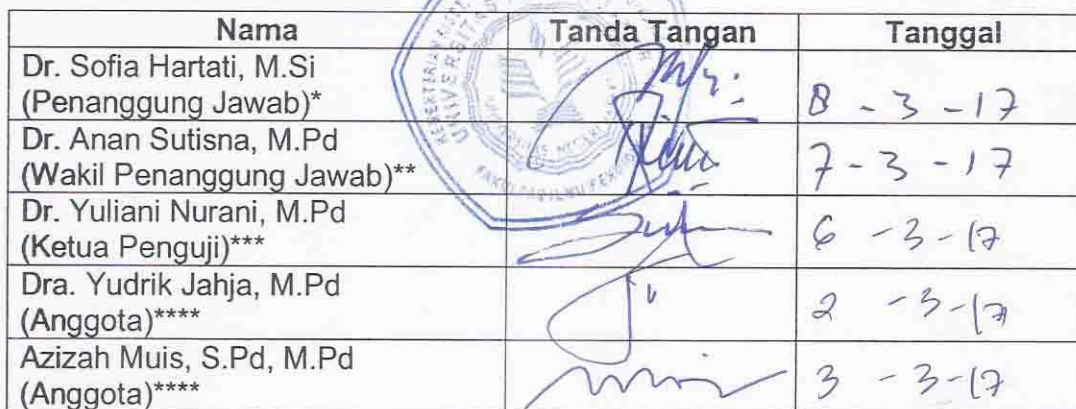 Nama Tanda Tangan Tanggal
Dr. Sofia Hartati, M.Si
(Penanggung Jawab)* 8 - 3 - 17
Dr. Anan Sutisna, M.Pd
(Wakil Penanggung Jawab)** 7 - 3 - 17
Dr. Yuliani Nurani, M.Pd
(Ketua Penguji)*** 6 - 3 - 17
Dra. Yudrik Jahja, M.Pd
(Anggota)**** 2 - 3 - 17
Azizah Muis, S.Pd, M.Pd
(Anggota)**** 3 - 3 - 17